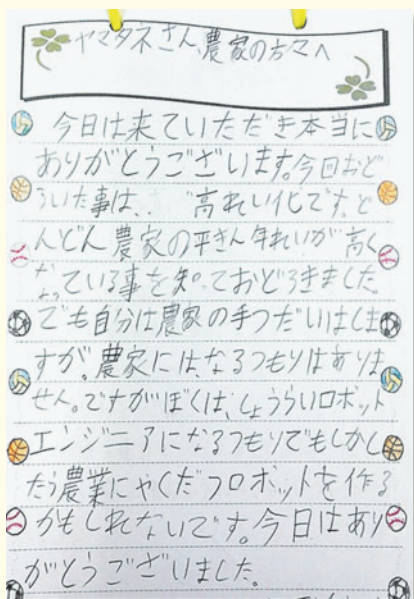 ヤマタネさん、農家の方々へ
今日は来ていただき本当に
ありがとうございます。今回おど
ろいた事は、、高れい化です。ど
んどん農家の平きん年れいが高く
なっている事を知っておどろきました。
でも自分は農家の手つだいはしま
すが、農家には、なるつもりはありま
せん。ですがぼくは、しょうらいロボット
エンジニアになるつもりでもしかし
たら農業にやくだつロボットを作る
かもしれないです。今日はあり
がとうございました。